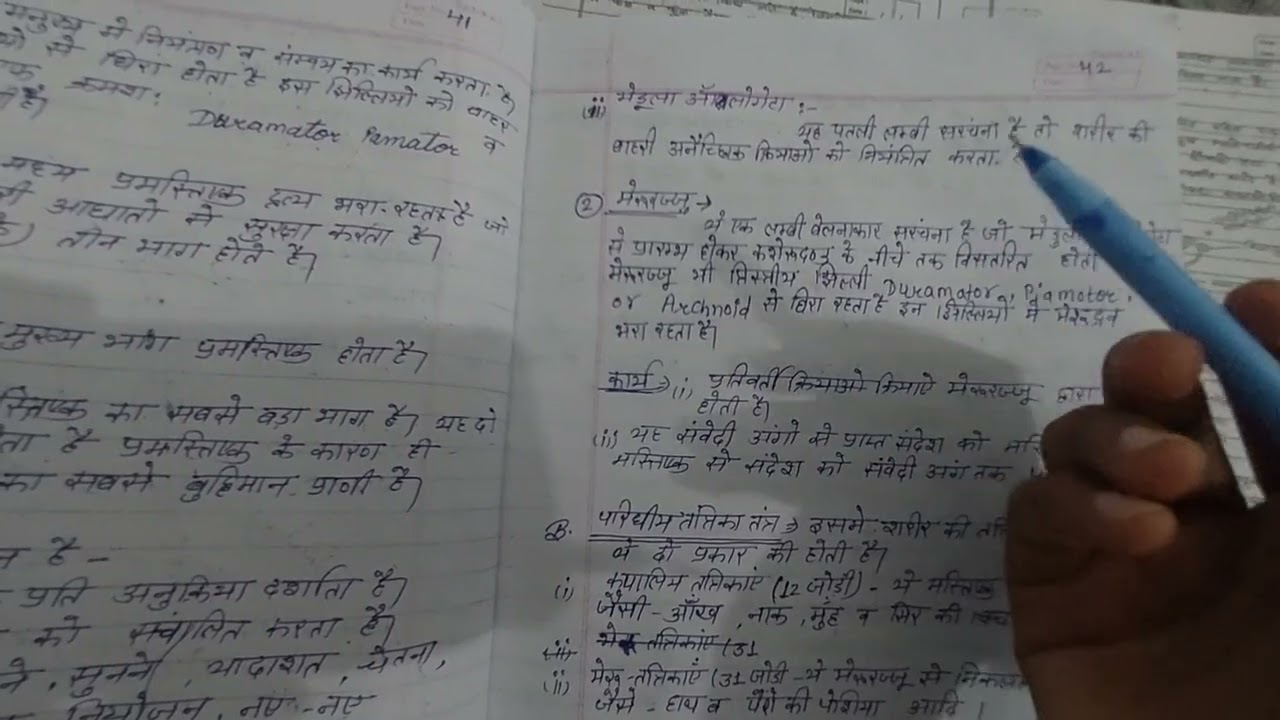 41
मनुष्य में नियंत्रण व समन्वय का कार्य करता है।
से घिरा होता है इस झिल्लियों को बाहर
क्रमशः
Duramator Pamator व
प्रमस्तिष्क द्रव्य भरा रहता है जो
आघातो से सुरक्षा करता है।
तीन भाग होते है।
मुख्य भाग प्रमस्तिष्क होता है।
का सबसे बड़ा भाग है। यह दो
है प्रमस्तिष्क के कारण ही
का सबसे बुद्धिमान प्राणी है।
है -
प्रति अनुक्रिया दर्शाता है।
को संचालित करता है।
सुनने, यादाशत, चेतना,
नियोजन, नए-नए
42
(iii) मेडूला ऑबलोगेटा :-
यह पतली लम्बी सरंचना है जो शरीर की
बाहरी अनैच्छिक क्रियाओ को नियंत्रित करता
② मेरूरज्जु →
ये एक लम्बी बेलनाकार सरंचना है जो
से प्रारम्भ होकर कशेरूदण्ड के नीचे तक विस्तारित होता
मेरूरज्जू भी त्रिस्तरीय झिल्ली Duramator, Piamotor,
or Archnoid से घिरा रहता है इन झिल्लियों में मेरूद्रव
भरा रहता है।
कार्य → (i) प्रतिवर्ती क्रियाओ क्रियाऐ मेरूरज्जू द्वारा
होती है।
(ii) यह संवेदी अंगो से प्राप्त संदेश को
मस्तिष्क से संदेश को संवेदी अंग तक
B. परिधीय तंत्रिका तंत्र → इसमे शरीर की
ये दो प्रकार की होती है।
(i) कपालिय तंत्रिकाएं (12 जोडी) - ये मस्तिष्क
जैसी - आँख, नाक, मुंह व सिर की
(ii) मेरू तंत्रिकाएं (31
(ii) मेरू-तंत्रिकाएँ (31 जोडी - ये मेरूरज्जू से
जैसे - हाथ व पैरो की पेशिया आदि।